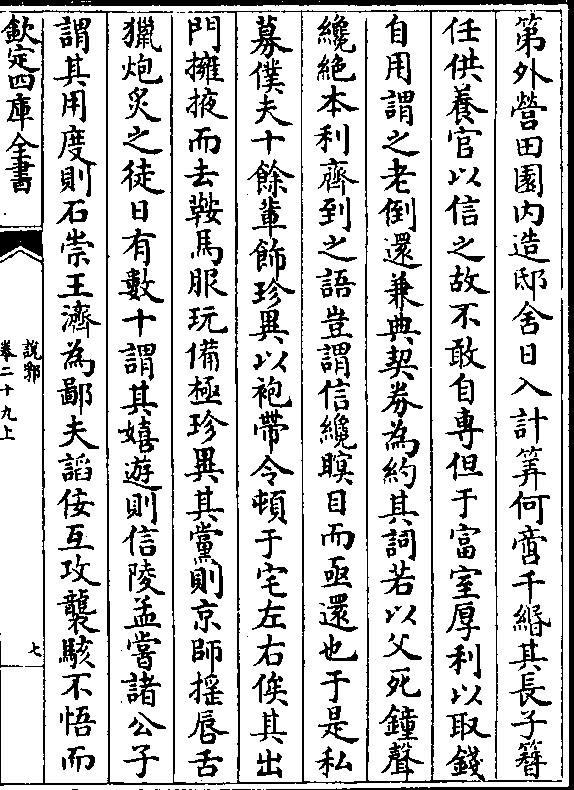 第外營田園内造邸舍日入計筭何啻千緡其長子簪
任供養官以信之故不敢自専但于富室厚利以取錢
自用謂之老倒還兼典契券為約其詞若以父死鐘聲
纔絶本利齊到之語豈謂信纔瞑目而亟還也于是私
募僕夫十餘輩飾珍異以袍帶令頓于宅左右俟其出
門擁掖而去鞍馬服玩備極珍異其黨則京師揺唇舌
獵炮炙之徒日有數十謂其嬉遊則信陵孟嘗諸公子
謂其用度則石崇王濟為鄙夫謟佞互攻襲駭不悟而
欽定四庫全書
説郛
卷二十九上
七